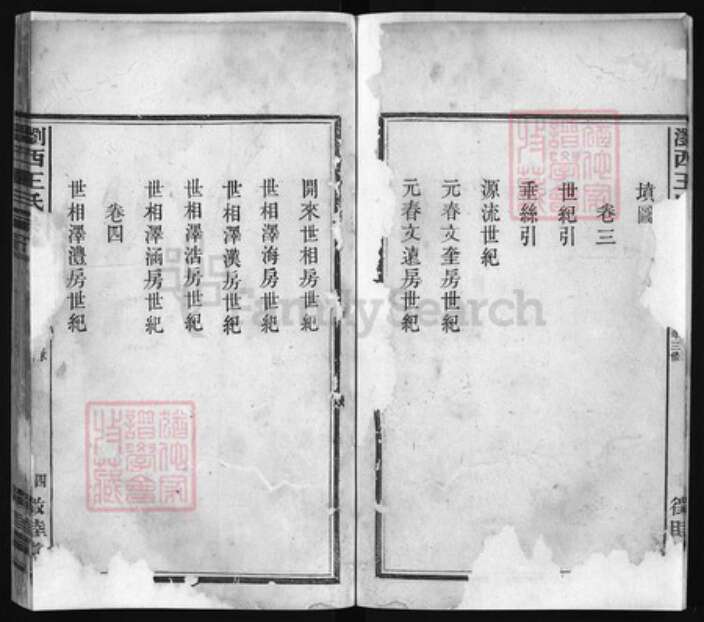 墳圖
卷三
世紀引
垂絲引
源流世紀
元春文奎房世紀
元春文遠房世紀
開來世相房世紀
世相澤海房世紀
世相澤漢房世紀
世相澤浩房世紀
世相澤涵房世紀
卷四
世相澤澧房世紀
瀏西王氏
四
敦睦
FamilySearch